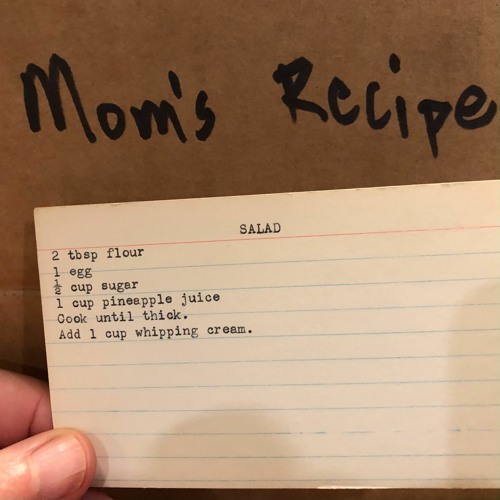 Mom's Recipe
SALAD
2 tbsp flour
1 egg
½ cup sugar
1 cup pineapple juice
Cook until thick.
Add 1 cup whipping cream.